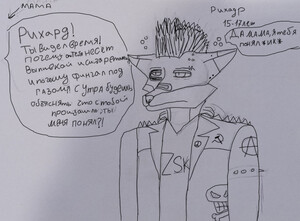 мама
Рихард!
Ты видел время!
почему
несёт
выпивкой и сигаретами
и почему фингал под
глазом! с утра будешь
объяснять что с тобой
произошло, ты
меня понял?!
Рихард
15-17 лет
Да мама, я тебя
понял
ZSK
A